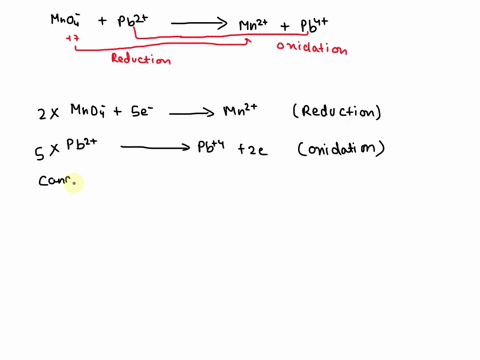 MnO₄⁻ + Pb²⁺ ⟶ Mn²⁺ + Pb⁴⁺
+7
Reduction
oxidation
2 × MnO₄⁻ + 5e⁻ ⟶ Mn²⁺ (Reduction)
5 × Pb²⁺ ⟶ Pb⁺⁴ + 2e (oxidation)
Canc